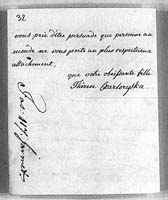 32
vous prie d'être persuadé que personne au
monde ne vous porte un plus respectueux
attachement,
que votre obéissante fille
Thérèse Czartoryska